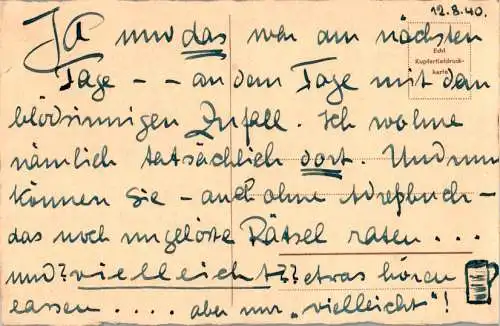 12.8.40.
Echt
Kupfertiefdruck-
karte
JA und das war am nächsten
Tage - - an dem Tage mit dem
blödsinnigen Zufall. Ich wohne
nämlich tatsächlich dort. Und nun
können Sie - auch ohne Adreßbuch -
das noch ungelöste Rätsel raten ...
und? vielleicht?? etwas hören
lassen .... aber nur "vielleicht"!